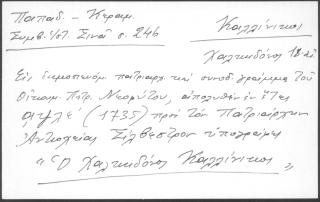 Παπαδ. - Κεραμ.
Συμβ. ἱστ. Σινᾶ σ. 246
Καλλίνικος
Χαλκηδόνος 18 αἰ
Εἰς πατριαρχ. καὶ συνοδ. γράμμα τοῦ
Οἰκουμ. Πατρ. Νεοφύτου, ἀπολυθὲν ἐν ἔτει
αψλε΄ (1735) πρὸς τὸν Πατριάρχην
Ἀντιοχείας Σίλβεστρον ὑπογράφει
"Ὁ Χαλκηδόνος Καλλίνικος"